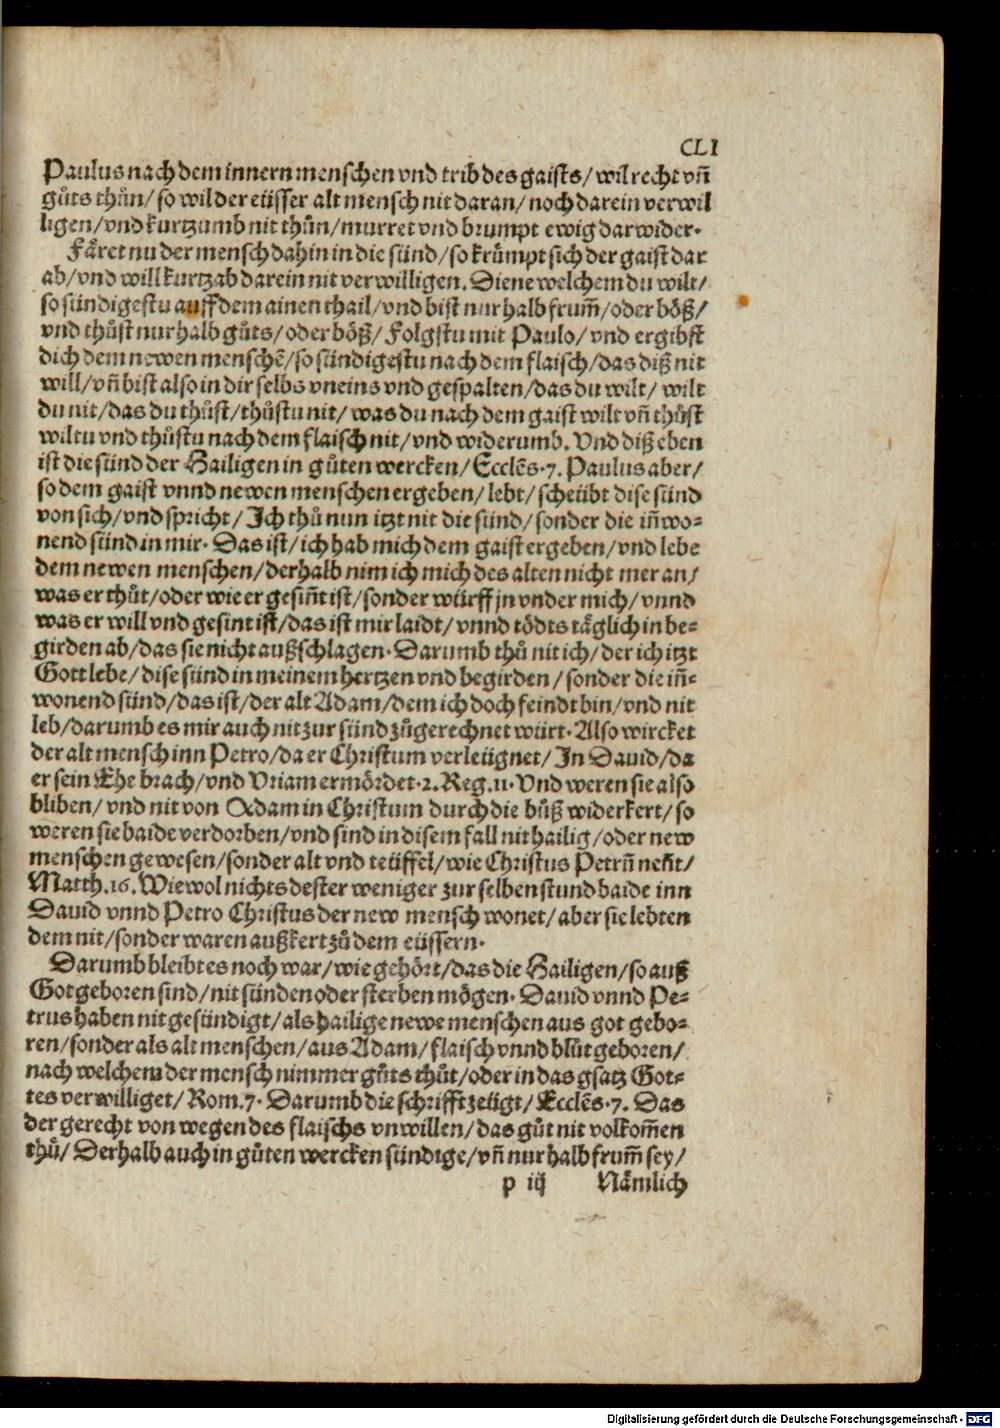 CLI
Paulus nach dem innern menschen vnd trib des gaists/ wil recht vñ
gůts thůn/ so wil der eüsser alt mensch nit daran/ noch darein verwil
ligen/ vnd kurtzumb nit thůn/ murret vnd brumpt ewig darwider.
Färet nu der mensch dahin in die sünd/ so krümpt sich der gaist dar
ab/ vnd will kurtz ab darein nit verwilligen. Diene welchem du wilt/
so sündigestu auff dem ainen thail/ vnd bist nur halb frum̃/ oder böß/
vnd thůst nur halb gůts/ oder böß/ Folgstu mit Paulo/ vnd ergibst
dich dem newen menschẽ/ so sündigestu nach dem flaisch/ das diß nit
will/ vñ bist also in dir selbs vneins vnd gespalten/ das du wilt/ wilt
du nit/ das du thůst/ thůstu nit/ was du nach dem gaist wilt vñ thůst
wiltu vnd thůstu nach dem flaisch nit/ vnd widerumb. Vnd diß eben
ist die sünd der Hailigen in gůten wercken/ Ecclẽs. 7. Paulus aber/
so dem gaist vnnd newen menschen ergeben/ lebt/ scheübt dise sünd
von sich/ vnd spricht/ Ich thů nun itzt nit die sünd/ sonder die iñwo-
nend sünd in mir. Das ist/ ich hab mich dem gaist ergeben/ vnd lebe
dem newen menschen/ derhalb nim ich mich des alten nicht mer an/
was er thůt/ oder wie er gesiñt ist/ sonder würff jn vnder mich/ vnnd
was er will vnd gesint ist/ das ist mir laidt/ vnnd tödts täglich in be-
girden ab/ das sie nicht außschlagen. Darumb thů nit ich/ der ich itzt
Gott lebe/ dise sünd in meinem hertzen vnd begirden/ sonder die iñ-
wonend sünd/ das ist/ der alt Adam/ dem ich doch feindt bin/ vnd nit
leb/ darumb es mir auch nit zur sünd zůgerechnet würt. Also wircket
der alt mensch inn Petro/ da er Christum verleügnet/ In Dauid/ da
er sein Ehe brach/ vnd Vriam ermördet. 2. Reg. 11. Vnd weren sie also
bliben/ vnd nit von Adam in Christum durch die bůß widerkert/ so
weren sie baide verdorben/ vnd sind in disem fall nit hailig/ oder new
menschen gewesen/ sonder alt vnd teüffel/ wie Christus Petrũ neñt/
Matth. 16. Wiewol nichts dester weniger zur selben stund baide inn
Dauid vnnd Petro Christus der new mensch wonet/ aber sie lebten
dem nit/ sonder waren außkert zů dem eüssern.
Darumb bleibt es noch war/ wie gehört/ das die Hailigen/ so auß
Got geboren sind/ nit sünden oder sterben mögen. Dauid vnnd Pe-
trus haben nit gesündigt/ als hailige newe menschen aus got gebo-
ren/ sonder als alt menschen/ aus Adam/ flaisch vnnd blůt geboren/
nach welchem der mensch nimmer gůts thůt/ oder in das gsatz Got-
tes verwilliget/ Rom. 7. Darumb die schrifft zeügt/ Ecclẽs. 7. Das
der gerecht von wegen des flaischs vnwillen/ das gůt nit volkom̃en
thů/ Derhalb auch in gůten wercken sündige/ vñ nur halb frum̃ sey/
p iij Nämlich
Digitalisierung gefördert durch die Deutsche Forschungsgemeinschaft - DFG